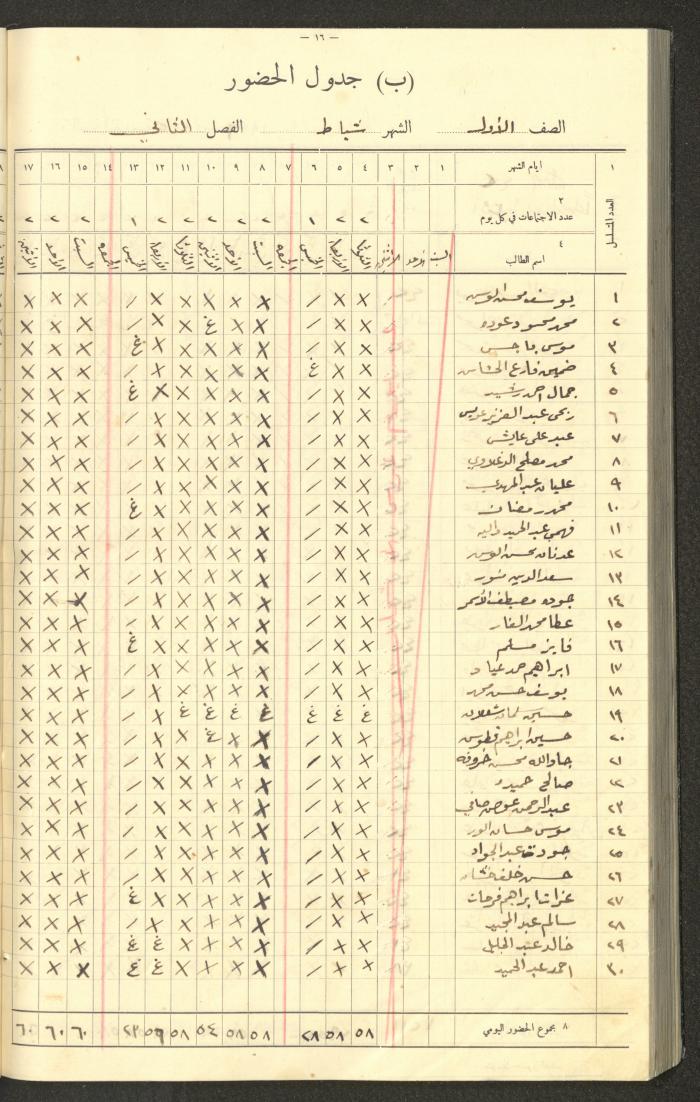 — ١٦ —
(ب) جدول الحضور
الصف الأول الشهر شباط الفصل الثاني
١ ايام الشهر ١ ٢ ٣ ٤ ٥ ٦ ٧ ٨ ٩ ١٠ ١١ ١٢ ١٣ ١٤ ١٥ ١٦ ١٧
العدد المتسلسل
٣
عدد الاجتماعات في كل يوم ٢ ٢ ١ ٢ ٢ ٢ ٢ ٢ ١ ٢ ٢ ٢
٤
اسم الطالب السبت الاحد الاثنين الثلاثا الاربعاء الخميس الجمعه السبت الاحد الاثنين الثلاثا الاربعاء الخميس الجمعه السبت الاحد الاثنين
١ يوسف محسن X X / X X X X X / X X X
٢ محمد محمود عوده X X / X X غ X X / X X X
٣ موسى X X / X X X X X غ X X X
٤ فارع X X غ X X X X X / X X X
٥ جمال احمد رشيد X X / X X X X X غ X X X
٦ ربحي عبد العزيز X X / X X X X X / X X X
٧ عبد علي عايش X X / X X X X X / X X X
٨ محمد مصلح X X / X X X X X / X X X
٩ عليان عبد المهدي X X / X X X X X / X X X
١٠ محمد رمضان X X / X X X X X غ X X X
١١ فهمي عبد الحميد X X / X X X X X / X X X
١٢ عدنان محسن X X / X X X X X / X X X
١٣ سعد الدين X X / X X X X X / X X X
١٤ جوده مصطفى الاسمر X X / X X X X X / X X X
١٥ عطا محمد X X / X X X X X / X X X
١٦ فايز مسلم X X / X X X X X غ X X X
١٧ ابراهيم حمد عياد X X / X X X X X / X X X
١٨ يوسف حسن محمد X X / X X X X X / X X X
١٩ حسين شعلان غ غ غ غ غ غ غ X / X X X
٢٠ حسين ابراهيم X X / X X غ X X / X X X
٢١ جادالله محسن X X / X X X X X / X X X
٢٢ صالح حميده X X / X X X X X / X X X
٢٣ عبد الرحمن عوض X X / X X X X X / X X X
٢٤ موسى حسان X X / X X X X X / X X X
٢٥ جودت عبد الجواد X X / X X X X X / X X X
٢٦ حسن خلف X X / X X X X X / X X X
٢٧ ابراهيم فرحات X X / X X X X X غ X X X
٢٨ سالم عبد المجيد X X / X X X X X / X X X
٢٩ خالد عبد الجليل X X / X X X X غ غ X X X
٣٠ احمد عبد الحميد X X / X X X X غ غ X X X
٨ مجموع الحضور اليومي ٥٨ ٥٨ ٢٨ ٥٨ ٥٨ ٥٤ ٥٨ ٥٦ ٢٣ ٦٠ ٦٠ ٦٠